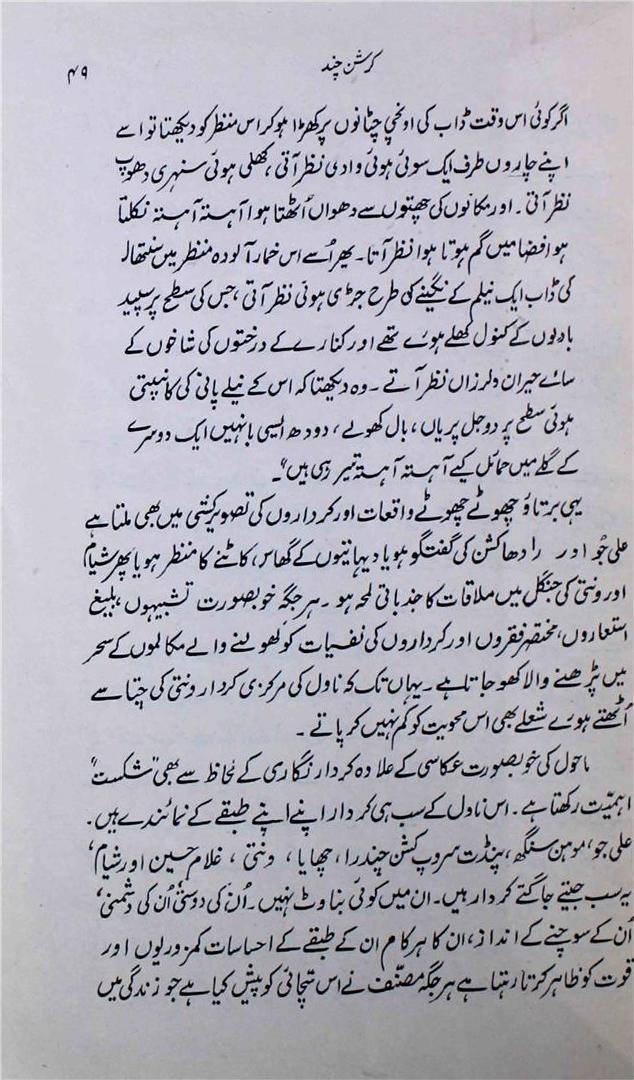 کرشن چند
۴۹
اگر کوئی اس وقت ڈاب کی اونچی چٹانوں پر کھڑا ہو کر اس منظر کو دیکھتا تو اسے
اپنے چاروں طرف ایک سوئی ہوئی وادی نظر آتی، کھلی ہوئی سنہری دھوپ
نظر آتی۔ اور مکانوں کی چھتوں سے دھواں اُٹھتا ہوا آہستہ آہستہ نکلتا
ہوا فضا میں گم ہوتا ہوا نظر آتا۔ پھر اُسے اس خمار آلودہ منظر میں سنتھالہ
کی ڈاب ایک نیلم کے نگینے کی طرح جڑی ہوئی نظر آتی، جس کی سطح پر سپید
بادلوں کے کنول کھلے ہوئے تھے اور کنارے کے درختوں کی شاخوں کے
سائے حیران و لرزاں نظر آتے۔ وہ دیکھتا کہ اس کے نیلے پانی کی کانپتی
ہوئی سطح پر دو جل پریاں، بال کھولے، دودھ ایسی بانہیں ایک دوسرے
کے گلے میں حمائل کیے آہستہ آہستہ تیر رہی ہیں"۔
یہی برتاؤ چھوٹے چھوٹے واقعات اور کرداروں کی تصویر کشی میں بھی ملتا ہے
علی جُو اور رادھا کشن کی گفتگو ہو یا دیہاتیوں کے گھاس، کاٹنے کا منظر ہو یا پھر شیام
اور ونتی کی جنگل میں ملاقات کا جذباتی لمحہ ہو۔ ہر جگہ خوبصورت تشبیہوں، بلیغ
استعاروں، مختصر فقروں اور کرداروں کی نفسیات کو کھولنے والے مکالموں کے سحر
میں پڑھنے والا کھو جاتا ہے۔ یہاں تک کہ ناول کی مرکزی کردار ونتی کی چتا سے
اُٹھتے ہوئے شعلے بھی اس محویت کو کم نہیں کر پاتے۔
ماحول کی خوبصورت عکاسی کے علاوہ کردار نگاری کے لحاظ سے بھی "شکست"
اہمیّت رکھتا ہے۔ اس ناول کے سب ہی کردار اپنے اپنے طبقے کے نمائندے ہیں۔
علی جو، موہن سنگھ، پنڈت سروپ کشن چندرا، چھایا، ونتی، غلام حسین اور شیام،
یہ سب جیتے جاگتے کردار ہیں۔ ان میں کوئی بناوٹ نہیں۔ اُن کی دوستی اُن کی دشمنی،
اُن کے سوچنے کے انداز، ان کا ہر کام ان کے طبقے کے احساسات کمزوریوں اور
قوت کو ظاہر کرتا رہتا ہے ہر جگہ مصنّف نے اس سچائی کو پیش کیا ہے جو زندگی میں